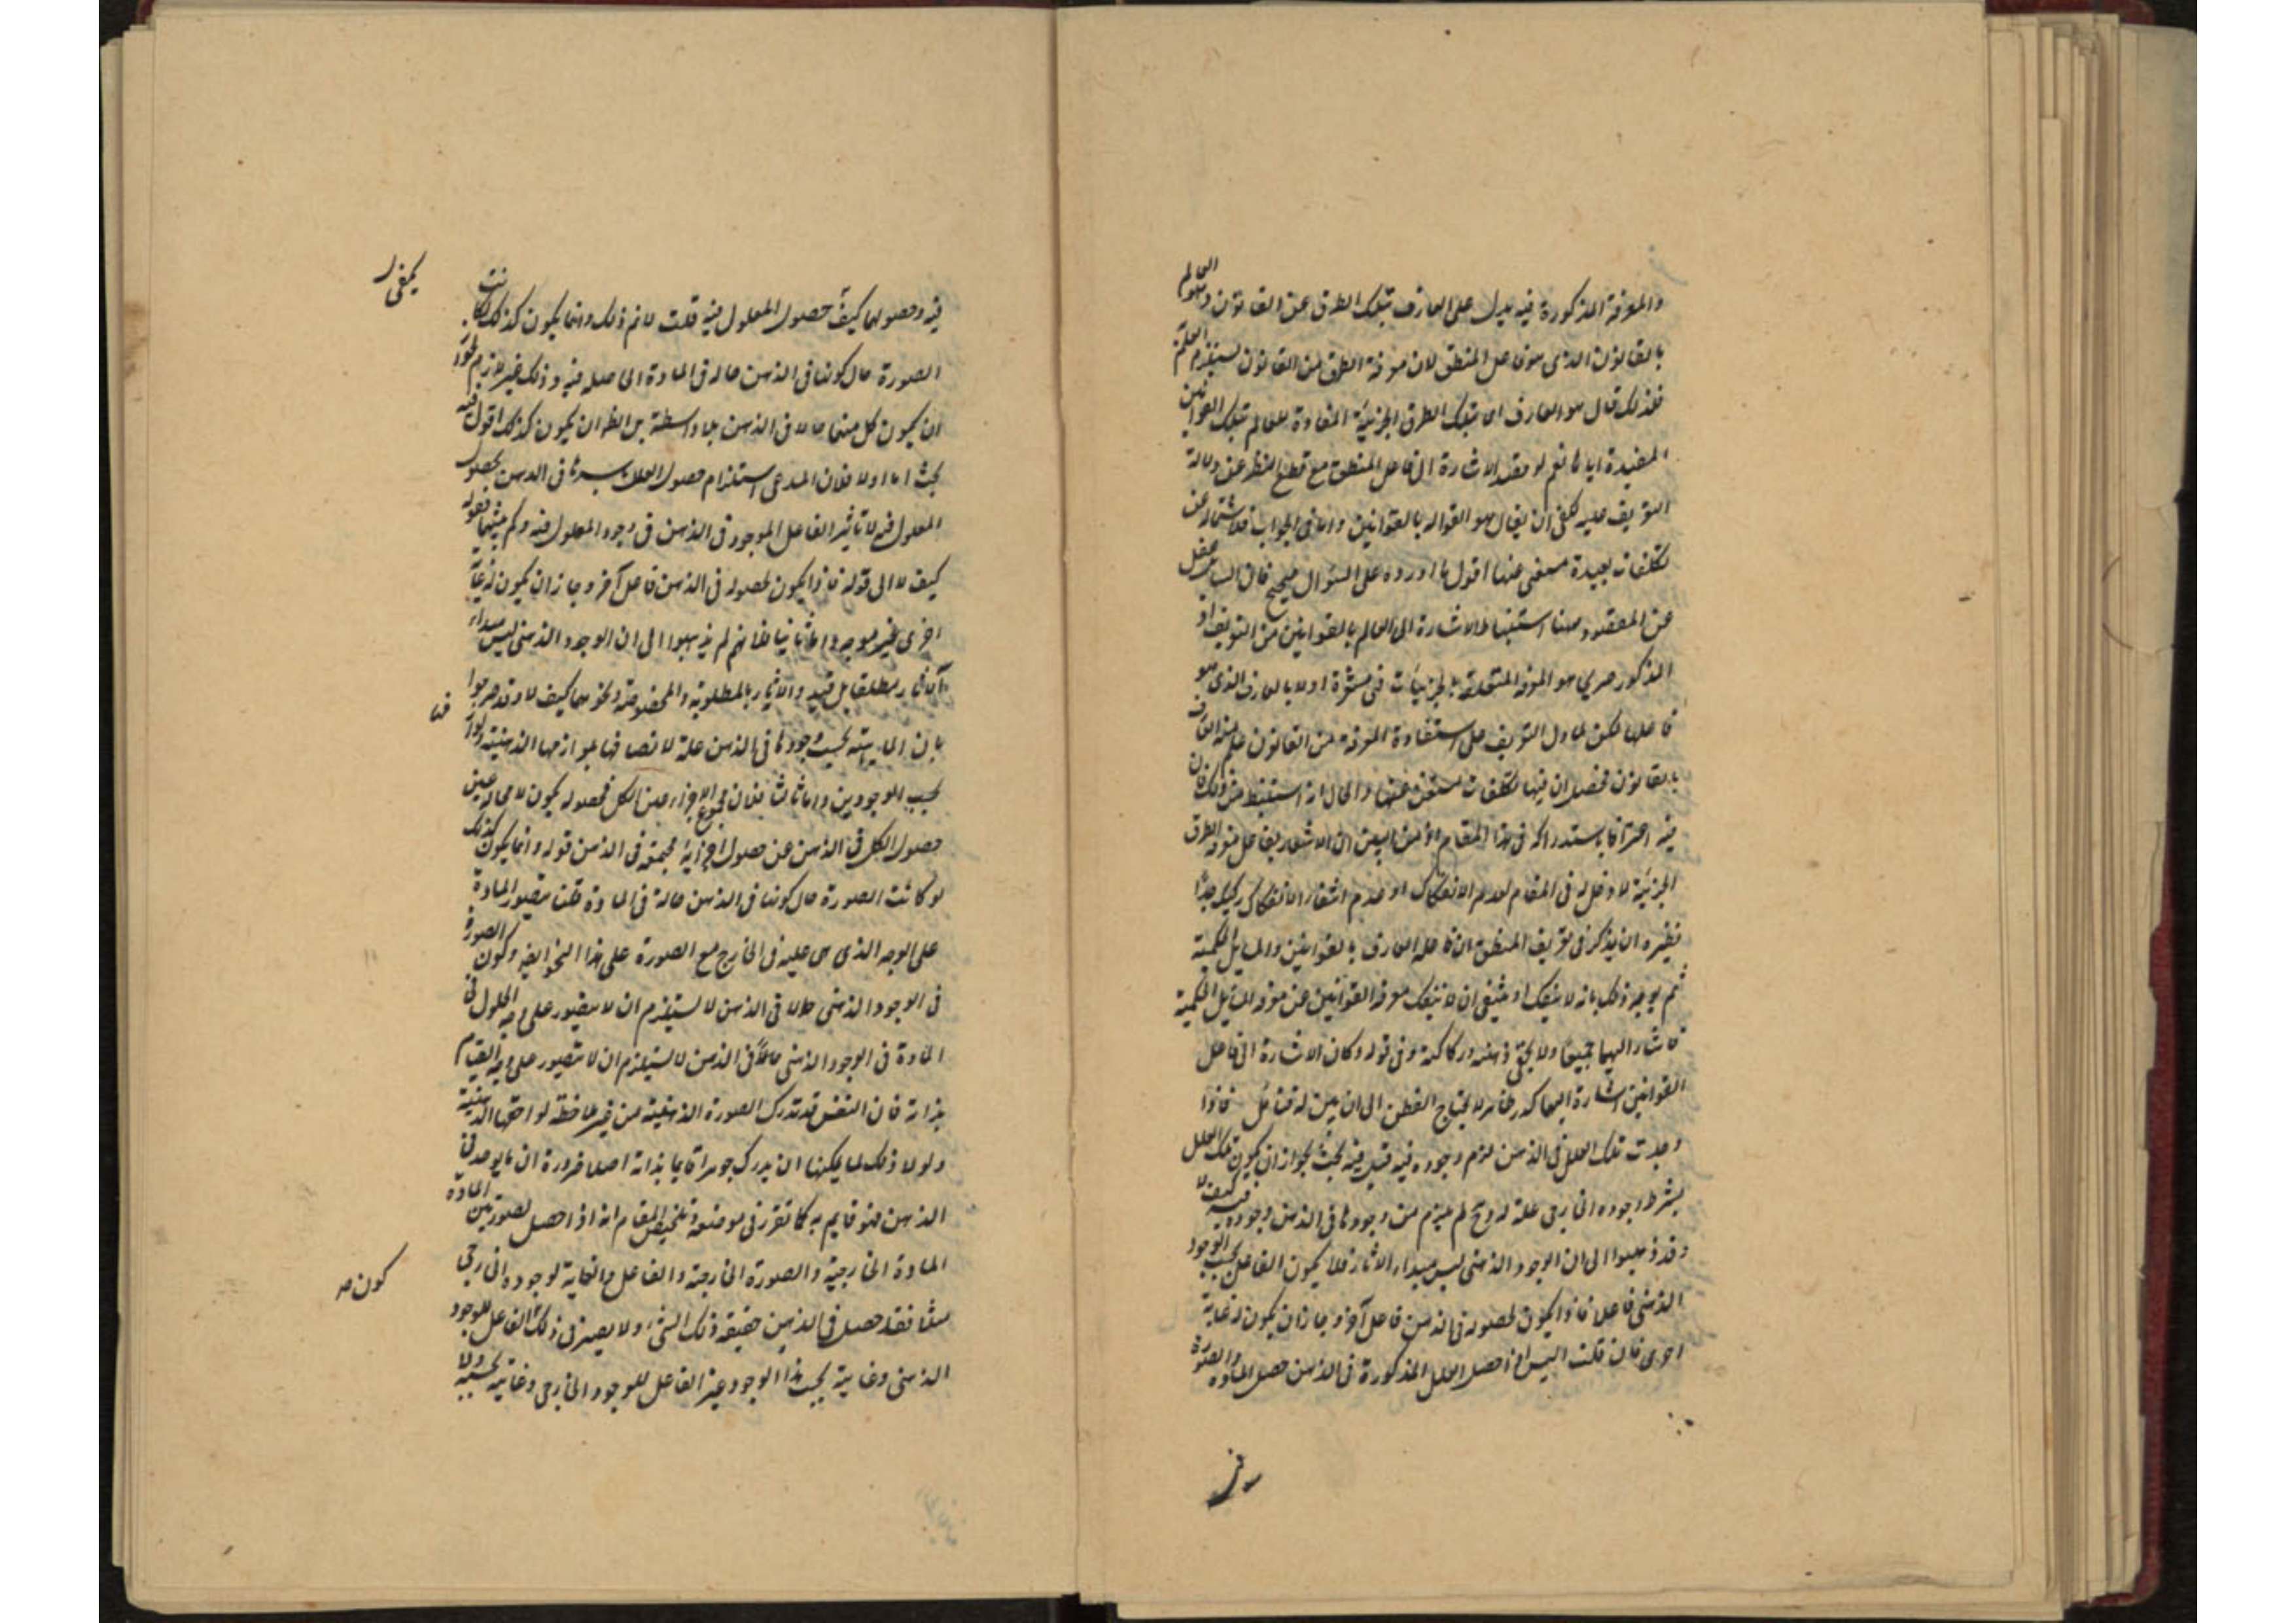 والمعرفة المذكورة فيه يدل على العارف بتلك الطرق عن القانون وهو العالم
بالقانون الذى هو فاعل المنطق لان معرفة الطرق من القانون يستلزم العلم
فلذلك قال هو العارف اى بتلك الطرق الجزئية المفادة للعالم بتلك القوانين
المفيدة اياها نعم لو قصد الاشارة الى فاعل المنطق مع قطع النظر عن دلالة
التعريف عليه لكفى ان يقال هو العالم بالقوانين واما فى الجواب فلاشتماله على
تكلفات بعيدة مستغنى عنها اقول ما اورده على السؤال صحيح فان السائل غفل
عن المقصود وهنا استنباط الاشارة الى العالم بالقوانين من التعريف اذ
المذكور صريحا هو المعرفة المتعلقة بالجزئيات فهى مشعرة اولا بالعارف الذى هو
فاعلها لكن لما دل التعريف على استفادة المعرفة من القانون علم منه العارف
بالقانون فحصل ان فيها تكلفات مستغن عنها والحال انه استنبط من ذلك فان
فيه اعترافا باستدراكه فى هذا المقام اذ الاشعار بفاعل معرفة الطرق
الجزئية لا دخل له فى المقام لعدم الانفكاك او عدم اشتهار الانفكاك ركيك جدا
نظيره ان يذكر فى تعريف المنطق ان فاعله العارف بالقوانين والمسائل الحكمية
ثم يوجه ذلك بانه لا ينفك او ينبغى ان لا ينفك معرفة القوانين عن معرفة المسائل الحكمية
فاشار اليهما جميعا ولا يخفى وهنه وركاكته وفى قوله وكان الاشارة الى فاعل
القوانين اشارة اليها كدر ظاهر لا يحتاج الفطن الى ان يبين له فتأمل فاذا
وجدت تلك العلل فى الذهن لزم وجوده فيه قيل فيه بحث لجواز ان يكون تلك العلل
بشرط وجوده الخارجى علة له وح لم يلزم من وجودها فى الذهن وجوده فيه كيف لا
وقد ذهبوا الى ان الوجود الذهنى ليس مبداء الاثار فلا يكون الفاعل بحسب الوجود
الذهنى فاعلا فاذا يكون لحصوله فى الذهن فاعل آخر وجاز ان يكون له غاية
اخرى فان قلت اليس اذا حصل العلل المذكورة فى الذهن حصل المادة والصورة
فيه وحصولهما كيف حصول المعلول فيه قلت لا نم ذلك وانما يكون كذلك لو كانت
الصورة حال كونها فى الذهن حالة فى المادة الحاصلة فيه وذلك غير لازم لجواز
ان يكون كل منهما حالا فى الذهن بلا واسطة بل الظ ان يكون كذلك اقول فيه
بحث اما اولا فلان المدعى استلزام حصول العلل باسرها فى الذهن لحصول
المعلول فيه لا تاثير الفاعل الموجود فى الذهن فى وجود المعلول فيه وكم بينهما فقوله
كيف لا الى قوله فاذا يكون لحصوله فى الذهن فاعل آخر وجاز ان يكون له غاية
اخرى غير موجه واما ثانيا فلانهم لم يذهبوا الى ان الوجود الذهنى ليس مبداء
الآثار مطلقا بل قيدوا الآثار بالمطلوبة والمخصوصة ونحوهما كيف لا وقد صرحوا
بان الماهية بحسب وجودها فى الذهن علة لاتصافها بلوازمها الذهنية
بحسب الوجودين واما ثالثا فلان مجموع الاجزاء عين الكل فحصوله يكون لا محالة عين
حصول الكل فى الذهن عن حصول اجزائه مجتمعة فى الذهن قوله وانما يكون كذلك
لو كانت الصورة حال كونها فى الذهن حالة فى المادة قلت تصور المادة
على الوجه الذى هى عليه فى الخارج مع الصورة على هذا النحو ايضا وكون الصورة
فى الوجود الذهنى حالا فى الذهن لا يستلزم ان لا يتصور على وجه الحلول فى
المادة فى الوجود الذهنى حالا فى الذهن لا يستلزم ان لا يتصور على وجه القيام
بذاته فان النفس قد تدرك الصورة الذهنية من غير ملاحظة لواحقها الذهنية
ولولا ذلك لما يمكنها ان يدرك جوهرا قائما بذاته اصلا ضرورة ان ما يوجد فى
الذهن فهو قايم به كما تقرر فى موضعه وتلخيص المقام انه اذا حصل تصور عين المادة
المادة الخارجية والصورة الخارجية والفاعل والغاية لوجوده الخارجى
مثلا فقد حصل فى الذهن حقيقة ذلك الشئ ولا يصير فى ذلك الفاعل للوجود
الذهنى وغايته بحسب هذا الوجود عين الفاعل للوجود الخارجى وغايته بحسبه ولا
كون ص